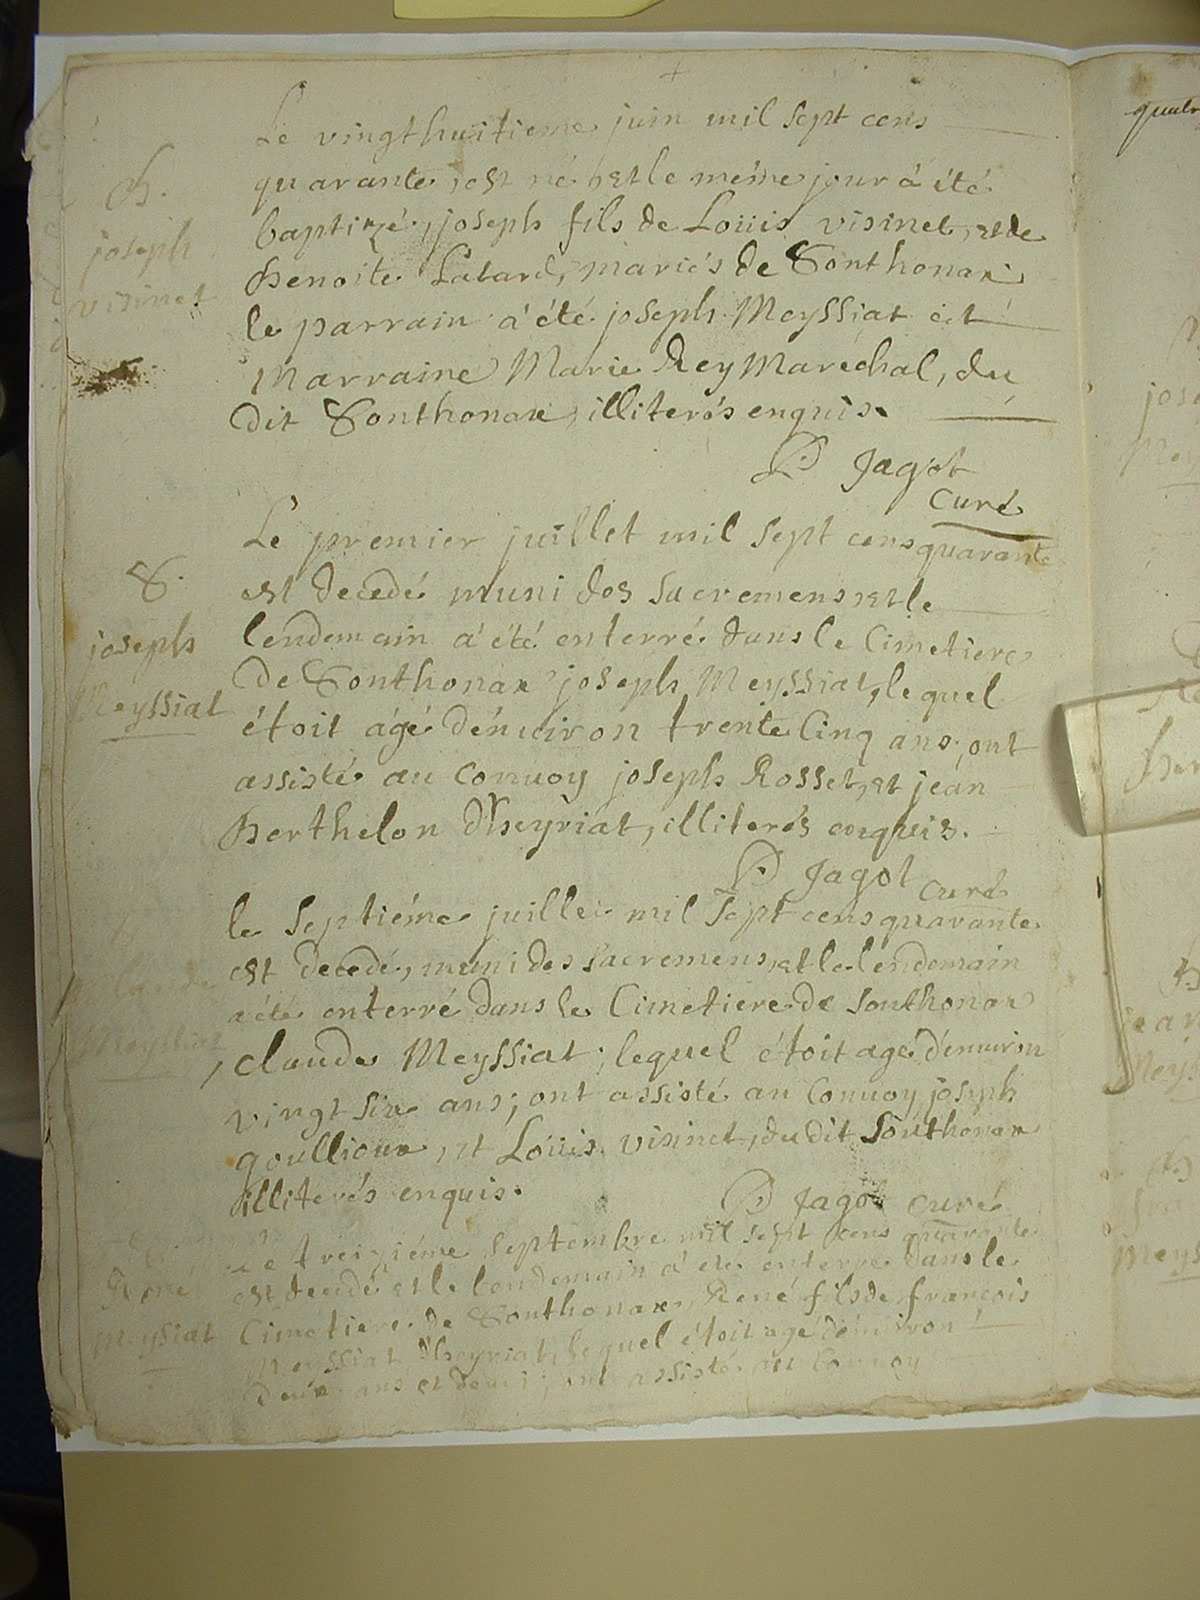 Le vingthuitieme juin mil sept cens
quarante, est né, et le méme jour á été
B.
joseph
visinet
baptizé, joseph fils de Loüis visinet, et de
Benoite Latard, mariés de Sonthonax
le parrain á été joseph Meyssiat et
marraine Marie Rey Maréchal, du
dit Sonthonax, illiterés enquis.
P Jagot
curé
Le premier juillet mil sept cens quarante
S.
joseph
Meyssiat
est decedé muni des sacremens, et le
lendemain á été enterré dans le Cimetiere
de Sonthonax joseph Meyssiat, lequel
étoit ágé d'enuiron trente Cinq ans, ont
assisté au Conuoy joseph Rosset, et jean
Berthelon d'heyriat, illiterés enquis.
P Jagot curé
le septiéme juillet mil sept cens quarante
Claude
Meyssiat
est decedé, muni des sacremens, et le lendemain
a été enterré dans le Cimetiere de Sonthonax
, claude Meyssiat; lequel étoit agé d'enuiron
vingt six ans; ont assisté au Conuoy joseph
goullioux, et Loüis visinet, du dit Sonthonax
illiterés enquis.
P Jagot curé
Le treiziéme septembre mil sept cens quarante
René
Meyssiat
est decedé et le lendemain á été enterré dans le
Cimetiere de Sonthonax, René fils de françois
Meyssiat d'heyriat, lequel étoit agé d'enuiron
deux ans et demi; ont assisté au Conuoy